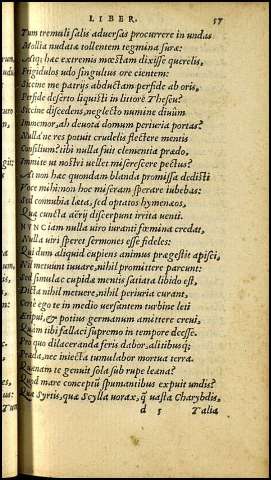 LIBER. 57
Tum tremuli salis aduersas procurrere in undas
Mollia nudatæ tollentem tegmina suræ:
Atq; hæc extremis mœstam dixisse querelis,
Frigidulos udo singultus ore cientem:
Siccine me patrijs abductam perfide ab oris,
Perfide deserto liquisti in littore Theseu?
Siccine discedens, neglecto numine diuûm
Immemor, ah deuota domum periuria portas?
Nulla ne res potuit crudelis flectere mentis
Consilium? tibi nulla fuit clementia præsto,
Immite ut nostri uellet miserescere pectus?
At non hæc quondam blanda promissa dedisti
Voce mihi: non hoc miseram sperare iubebas:
Sed connubia læta, sed optatos hymenæos,
Quæ cuncta aërij discerpunt irrita uenti.
NVNC iam nulla uiro iuranti fœmina credat,
Nulla uiri speret sermones esse fideles:
Qui dum aliquid cupiens animus prægestit apisci,
Nil metuunt iurare, nihil promittere parcunt:
Sed simulac cupidæ mentis satiata libido est,
Dicta nihil metuere, nihil periuria curant,
Certè ego te in medio uersantem turbine leti
Eripui, & potius germanum amittere creui,
Quam tibi fallaci supremo in tempore deesse.
Pro quo dilaceranda feris dabor, alitibusq;
Præda, nec iniecta tumulabor mortua terra.
Quænam te genuit sola sub rupe leæna?
Quod mare conceptū spumantibus expuit undis?
Quæ Syrtis, quæ Scylla uorax, q̃ uasta Charybdis,
d 5 Talia